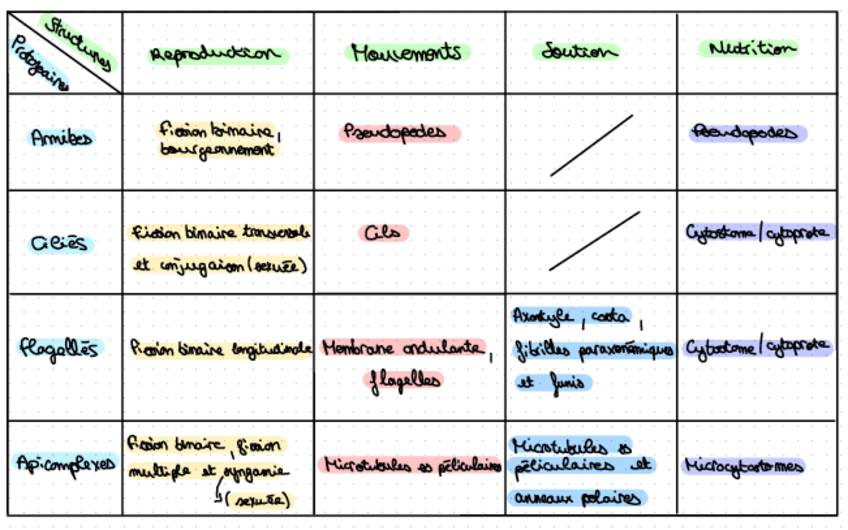 Structures
Protozoaires
Reproduction
Mouvements
Soution
Nutrition
Amibes
fission binaire,
bourgeonnement
Pseudopodes
Pseudopodes
Ciliés
Fission binaire transversale
et conjugaison (sexuée)
Cils
Cytostome / cytoprote
flagellés
Fission binaire longitudinale
Membrane ondulante,
flagelles
Axostyle, costa,
fibrilles paraxonémiques
et funis
Cytostome / cytoprote
Apicomplexes
Fission binaire, fission
multiple et syngamie
(sexuée)
Microtubules ss péliculaires
Microtubules ss
péliculaires et
anneaux polaires
Microcytostomes